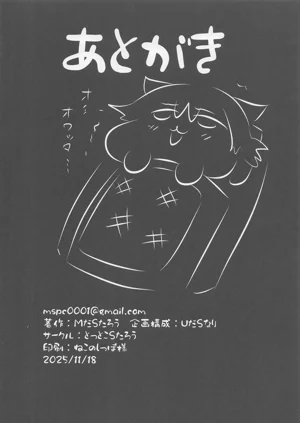 あとがき
オシ
オワッタ…
mspc0001@gmail.com
著作：MだSたろう 企画構成：UだSなり
サークル：とっとこSたろう
印刷：ねこのしっぽ様
2025/11/18